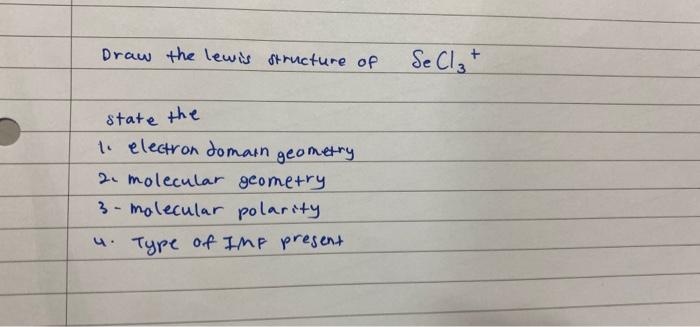 Draw the lewis structure of SeCl3+
state the
1. electron domain geometry
2. molecular geometry
3 - molecular polarity
4. Type of IMF present